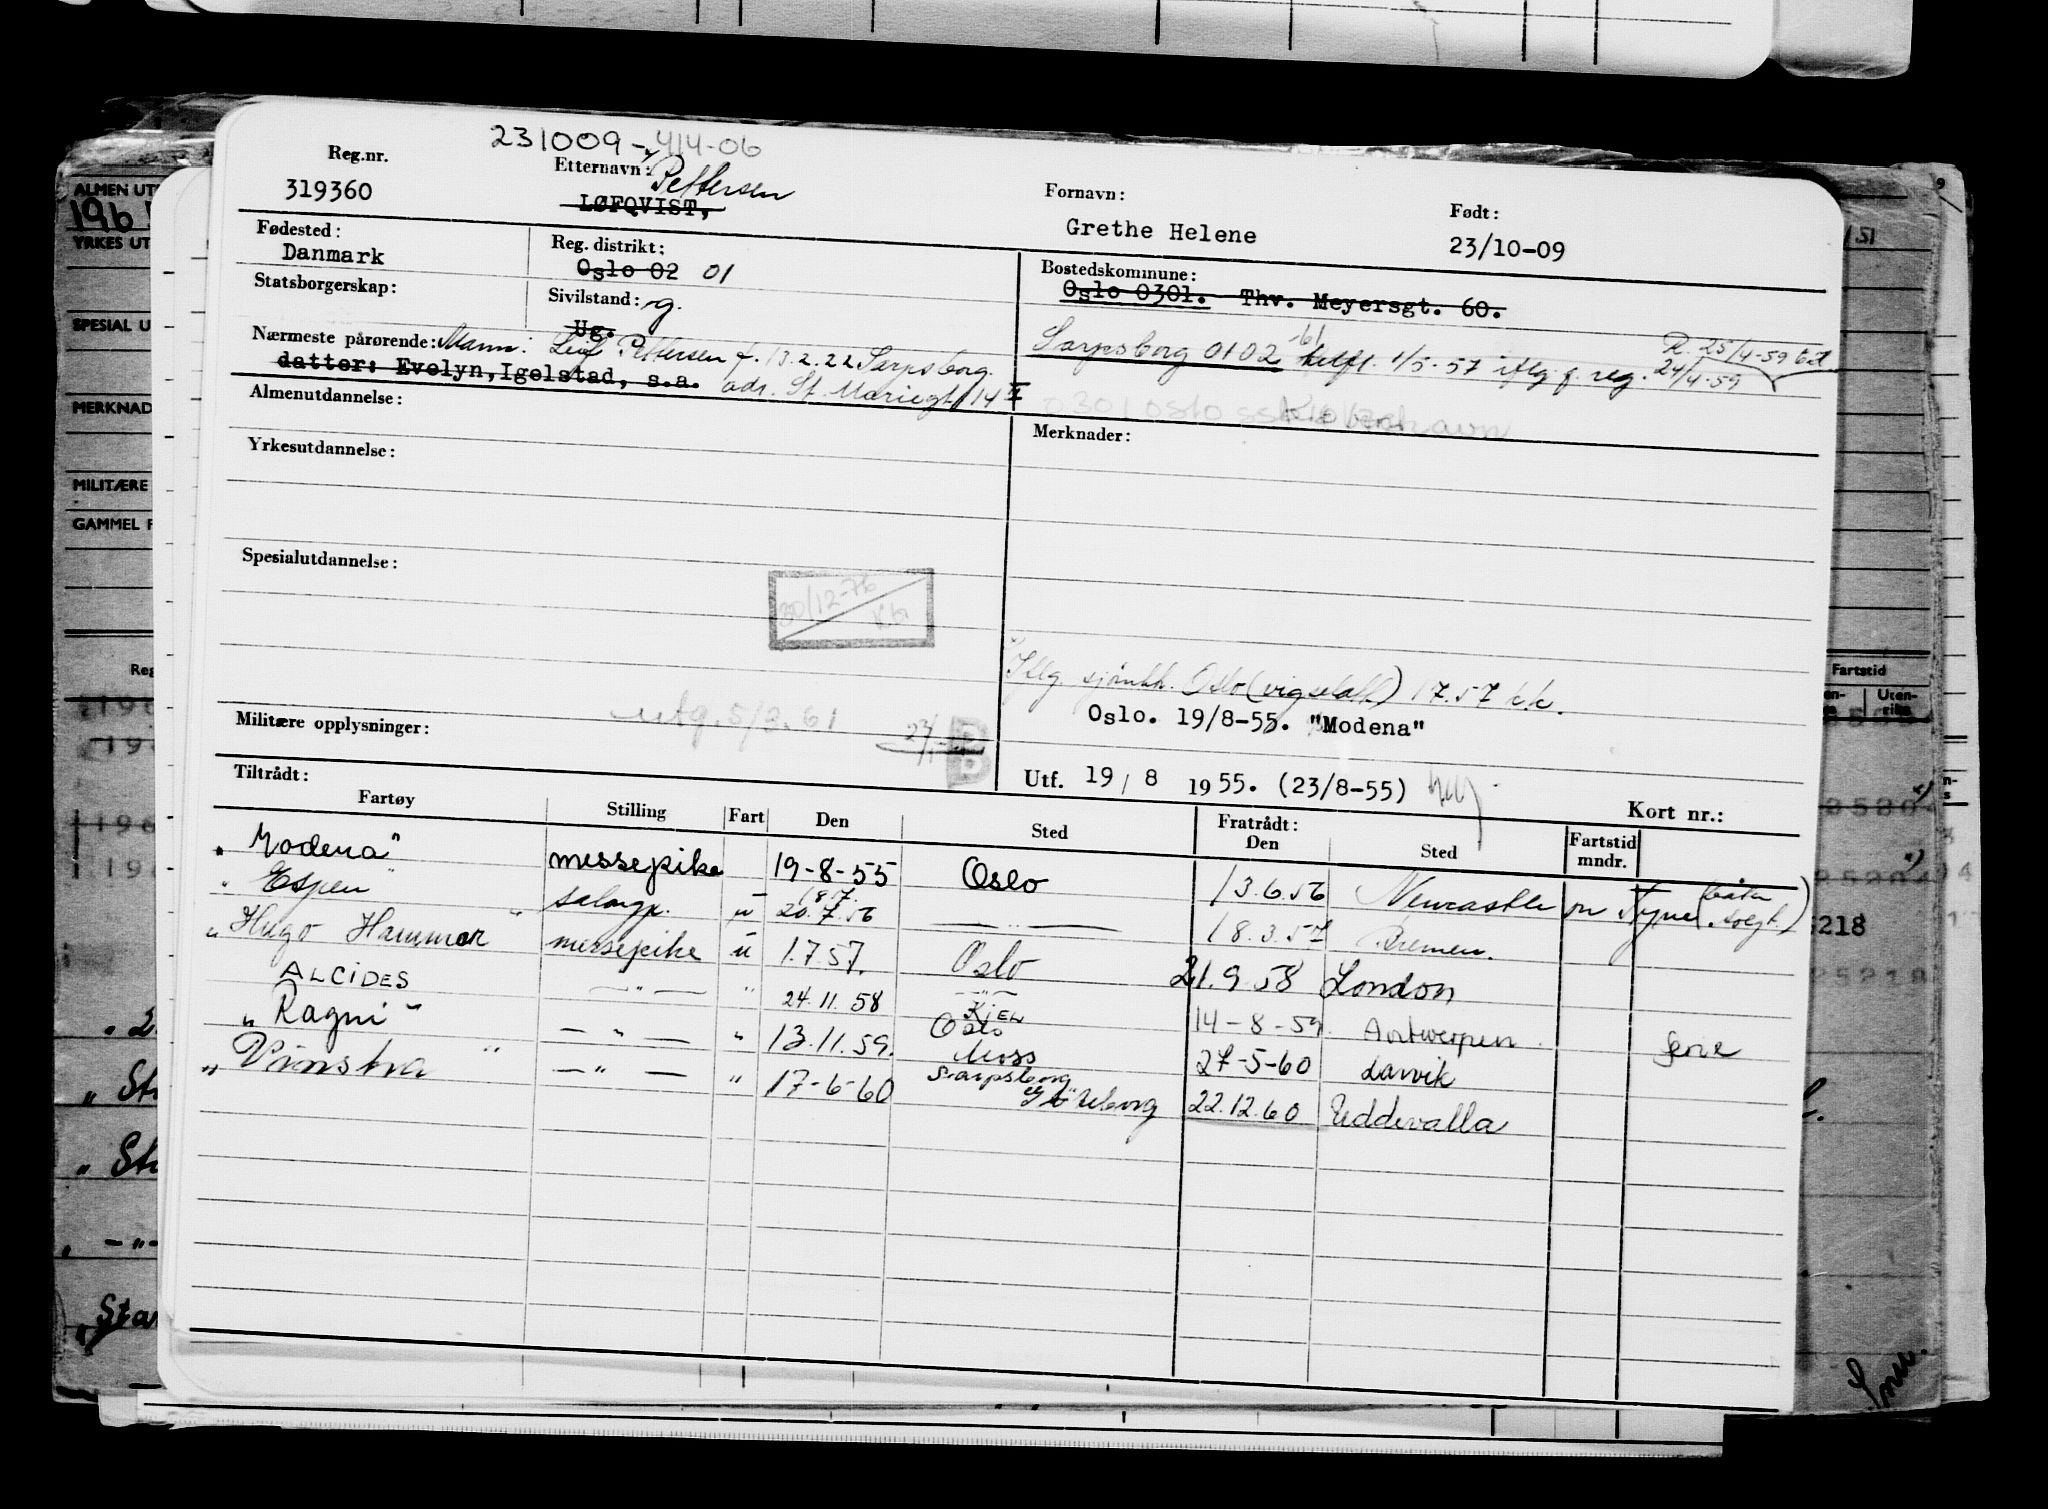 231009-414-06
Reg.nr. Etternavn: Pettersen Fornavn: Født:
319360 LØFQVIST, Grethe Helene 23/10-09
Fødested: Reg. distrikt: Bostedskommune:
Danmark Oslo 02 01 Oslo 0301. Thv. Meyersgt. 60.
Statsborgerskap: Sivilstand: g.
Ug.
Nærmeste pårørende: Mann: Leif Pettersen f. 13.2.22 Sarpsborg. Sarpsborg 0102 1/5-57 iflg. f. reg. 24/4-59
R. 25/4-59
datter: Evelyn, Igelstad, s.a. adr. St. Mariegt. 114 II
Almenutdannelse: Merknader:
Yrkesutdannelse:
Spesialutdannelse:
30/12-76
Iflg sjømkk. Oslo (vigselatt.) 17.57
utg. 5/3.61
Militære opplysninger: Oslo. 19/8-55. "Modena"
Utf. 19/8 1955. (23/8-55)
Tiltrådt: Kort nr.:
Fartøy Stilling Fart Den Sted Fratrådt: Den Sted Fartstid mndr.
"Modena" messepike 19-8-55 Oslo 13.6.56 Newcastle on Tyne (båten solgt.)
"Espen" salongp. u 18.7. 20.7.56 — " — 18.3.57 Bremen.
"Hugo Hammar" messepike u 1.7.57. Oslo 21.9.58 London
ALCIDES — " — " 24.11.58 — " — 14-8-59 Antwerpen ferie
"Ragni" — " — " 13.11.59. Oslo Moss 27-5-60 Larvik
"Vinstra" — " — " 17-6-60 Sarpsborg Göteborg 22.12.60 Uddevalla
ALMEN UT
196
YRKES UT
SPESIAL U
MERKNAD
MILITÆRE
GAMMEL F
Reg
Fartstid
Uten-riks
5218